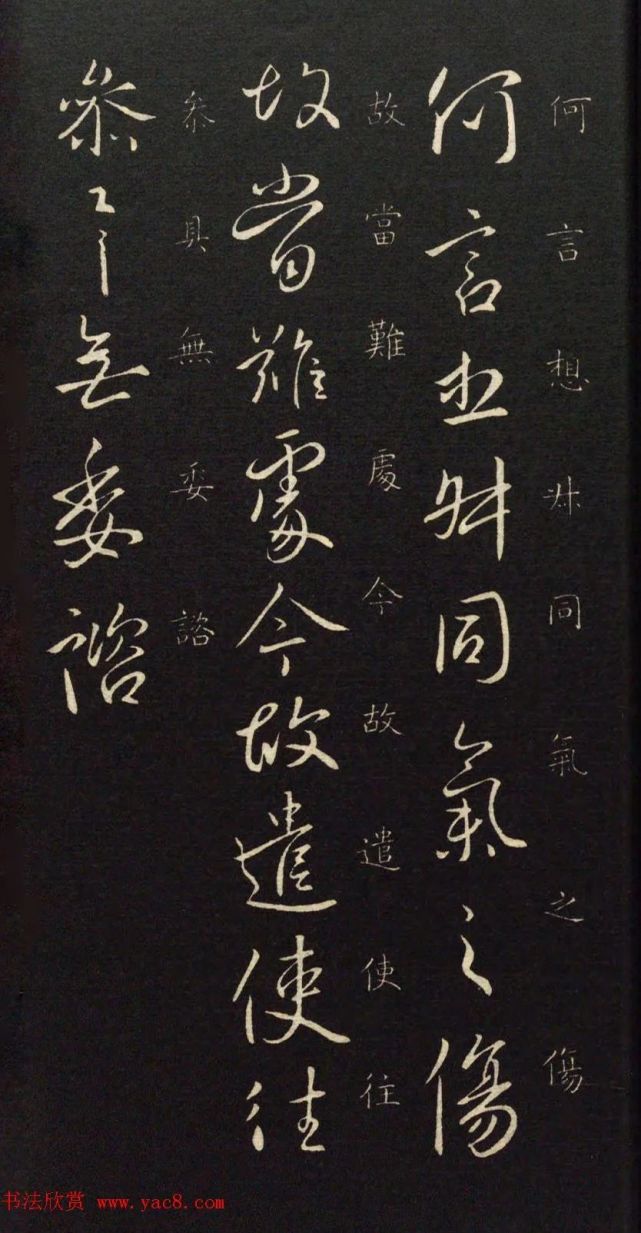 何言想同氣之傷
何言想同氣之傷
故當難處今故遣使往
故當難處今故遣使往
叅具無委諮
叅具無委諮
书法欣赏 www.yac8.com